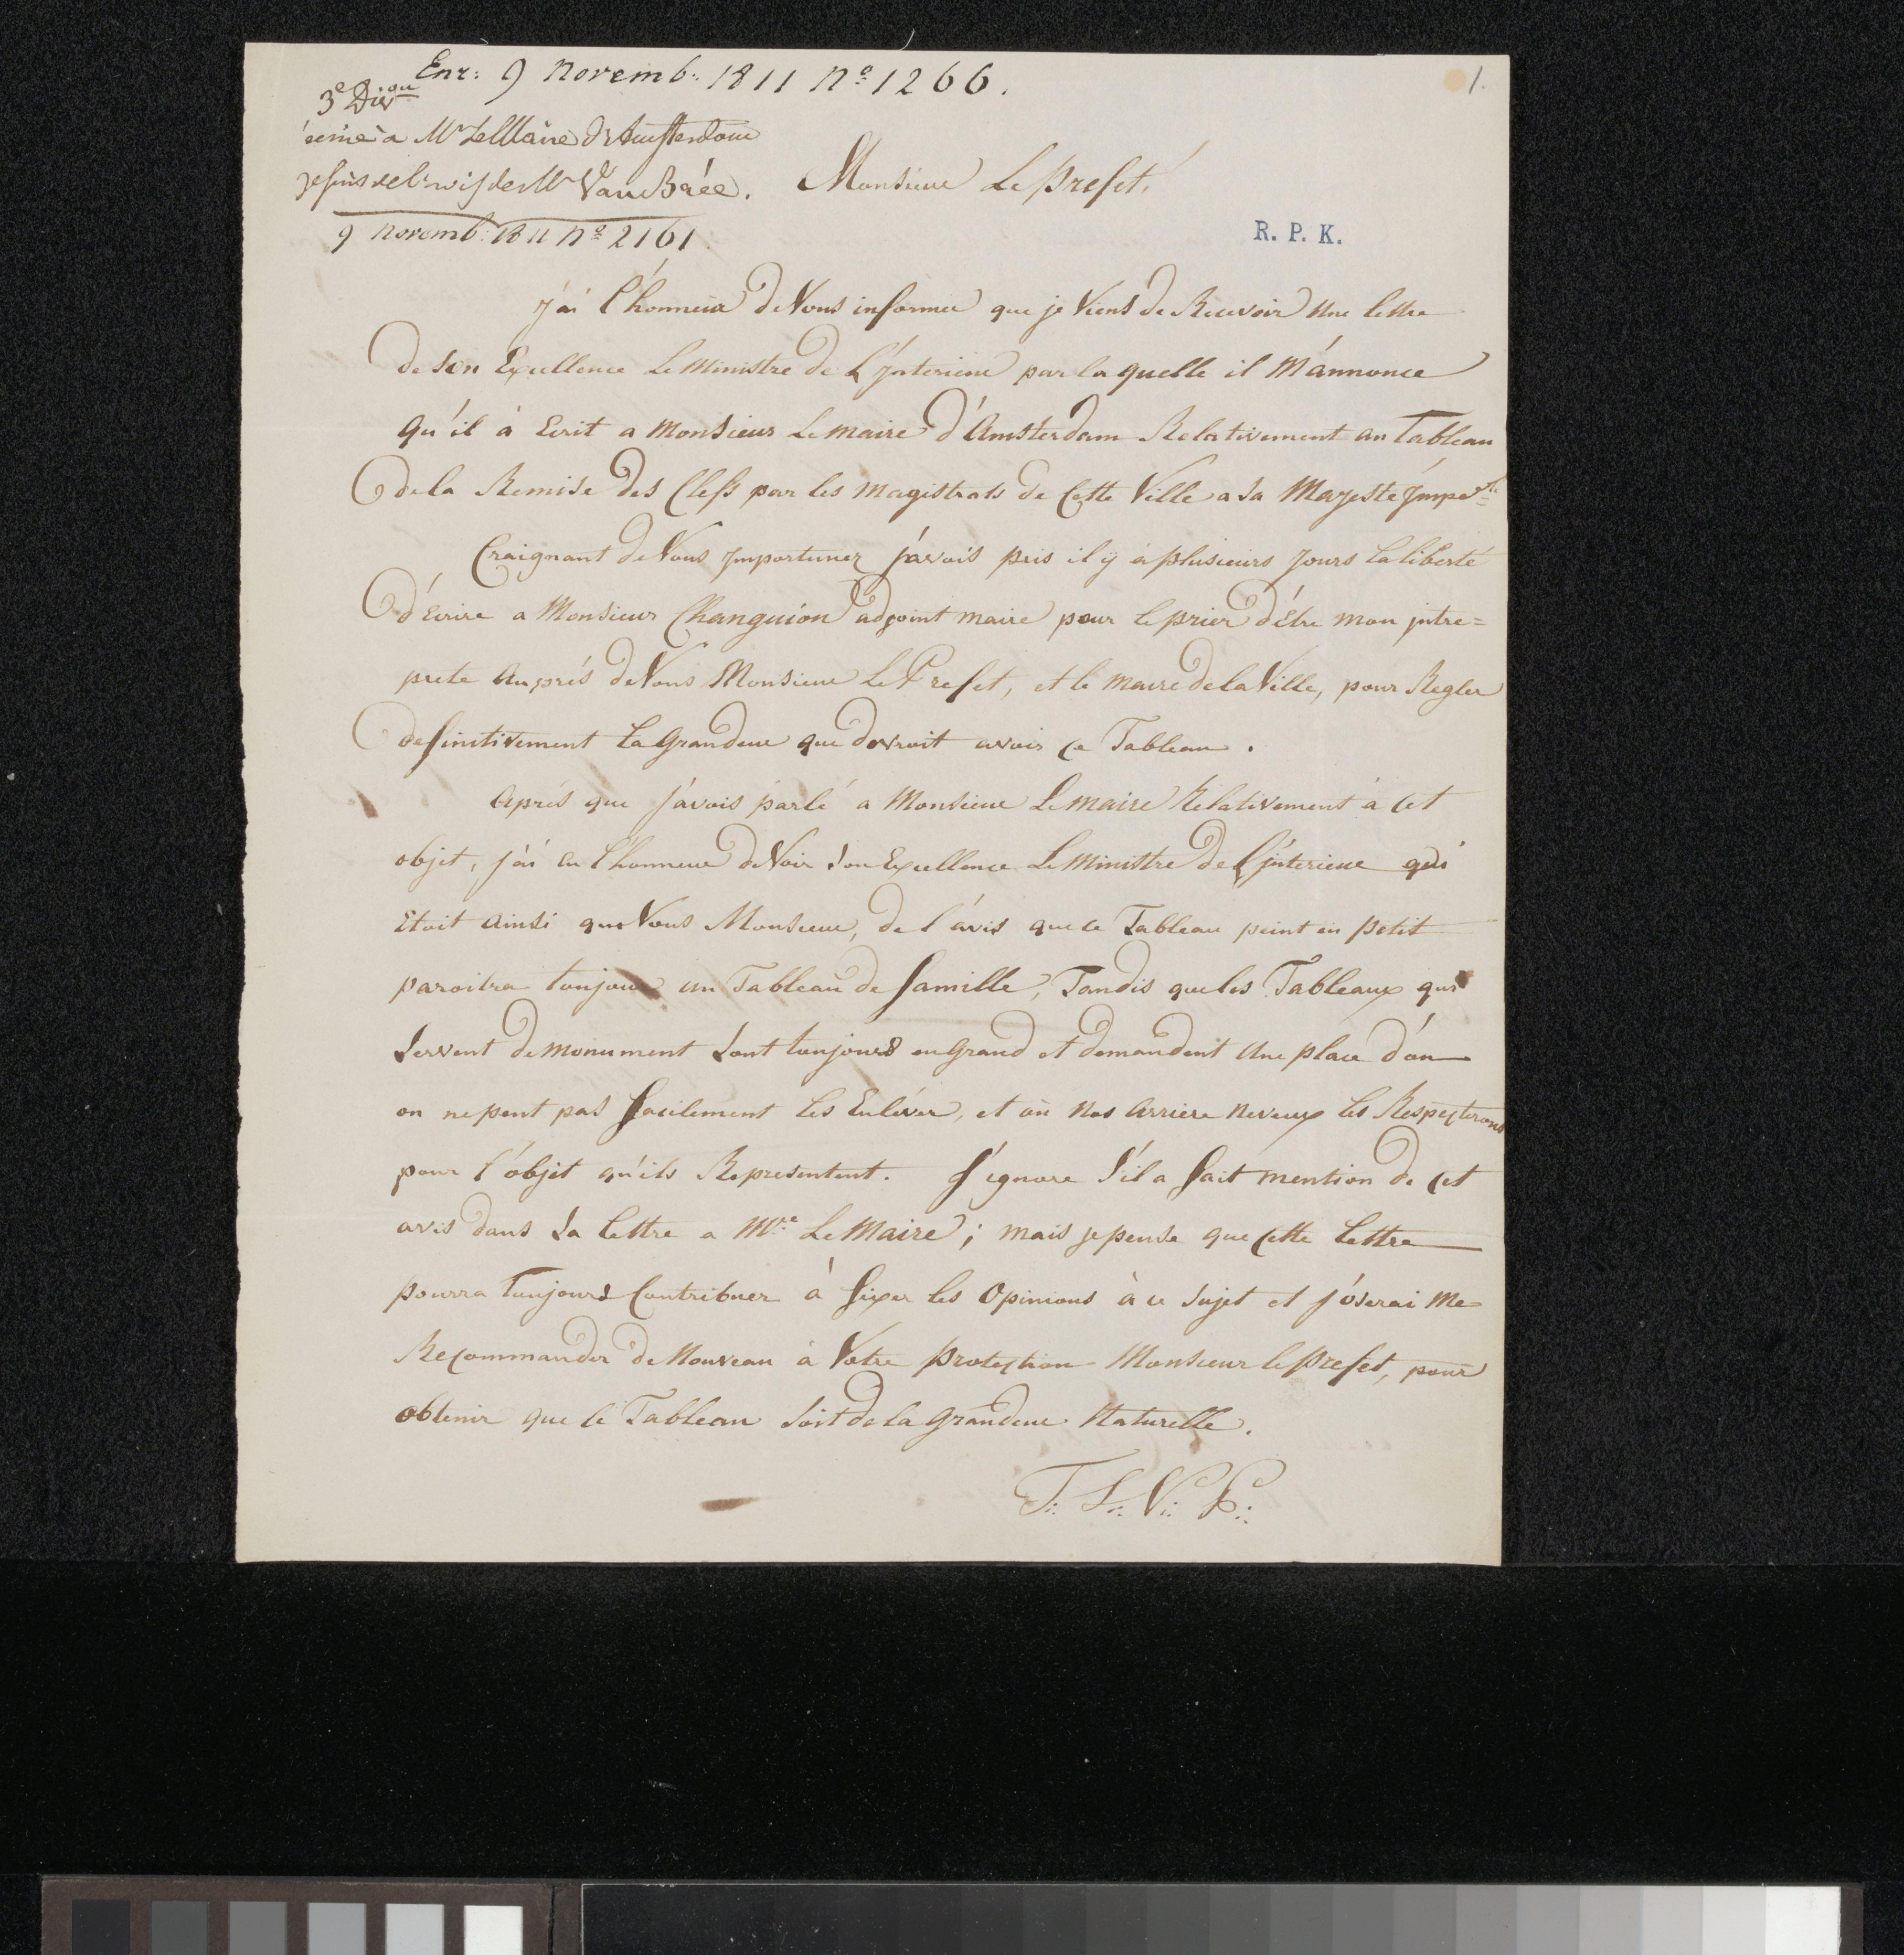 Enr: 9 Novemb: 1811 Nº 1266.
1.
3e Divon
écrire a Mr Le Maire d'Amsterdam
de Mr Van Brée.
9 Novemb: 1811 Nº 2161.
Monsieur Le Prefet,
R. P. K.
J'ai l'honneur de Vous informer que je Viens de Recevoir Une lettre
de Son Excellence Le Ministre de L'Jnterieur par la quelle il M'annonce
qu'il à Ecrit a Monsieur Le maire d'Amsterdam Relativement au Tableau
de la Remise des Clefs par les Magistrats de Cette Ville a Sa Majesté Jmperle
Craignant de Vous Jmportuner j'avois pris il ÿ à plusieurs Jours la liberté
d'Ecrire a Monsieur Changuion adjoint maire pour le prier d'être mon jntre=
prete Auprés de Vous Monsieur Le Prefet, et le maire de la Ville, pour Regler
definitivement La Grandeur que devroit avoir ce Tableau.
Aprés que j'avois parlé a Monsieur Le maire Rélativement à Cet
objet, j'ai eu l'honneur de Voir Son Excellence Le Ministre de L'jnterieur qui
Etoit Ainsi que Vous Monsieur, de l'avis que ce Tableau peint en petit
paroitra toujours un Tableau de famille, Tandis que les Tableaux qui
Servent de monument Sont toujours en Grand et demandent Une place d'ou
on ne peut pas facilement les Enléver, et où Nos Arriere Neveux les Respecterons
pour l'objet qu'ils Representent. J'ignore S'il a fait mention de Cet
avis dans Sa lettre a Mre Le Maire; mais je pense que Cette Lettre
pourra Toujours Contribuer à fixer les Opinions à ce Sujet et j'oserai Me
Recommander de Nouveau à Votre Protection Monsieur le Prefet, pour
obtenir que le Tableau Soit de la Grandeur Naturelle.
T:. S:. V:. P:.